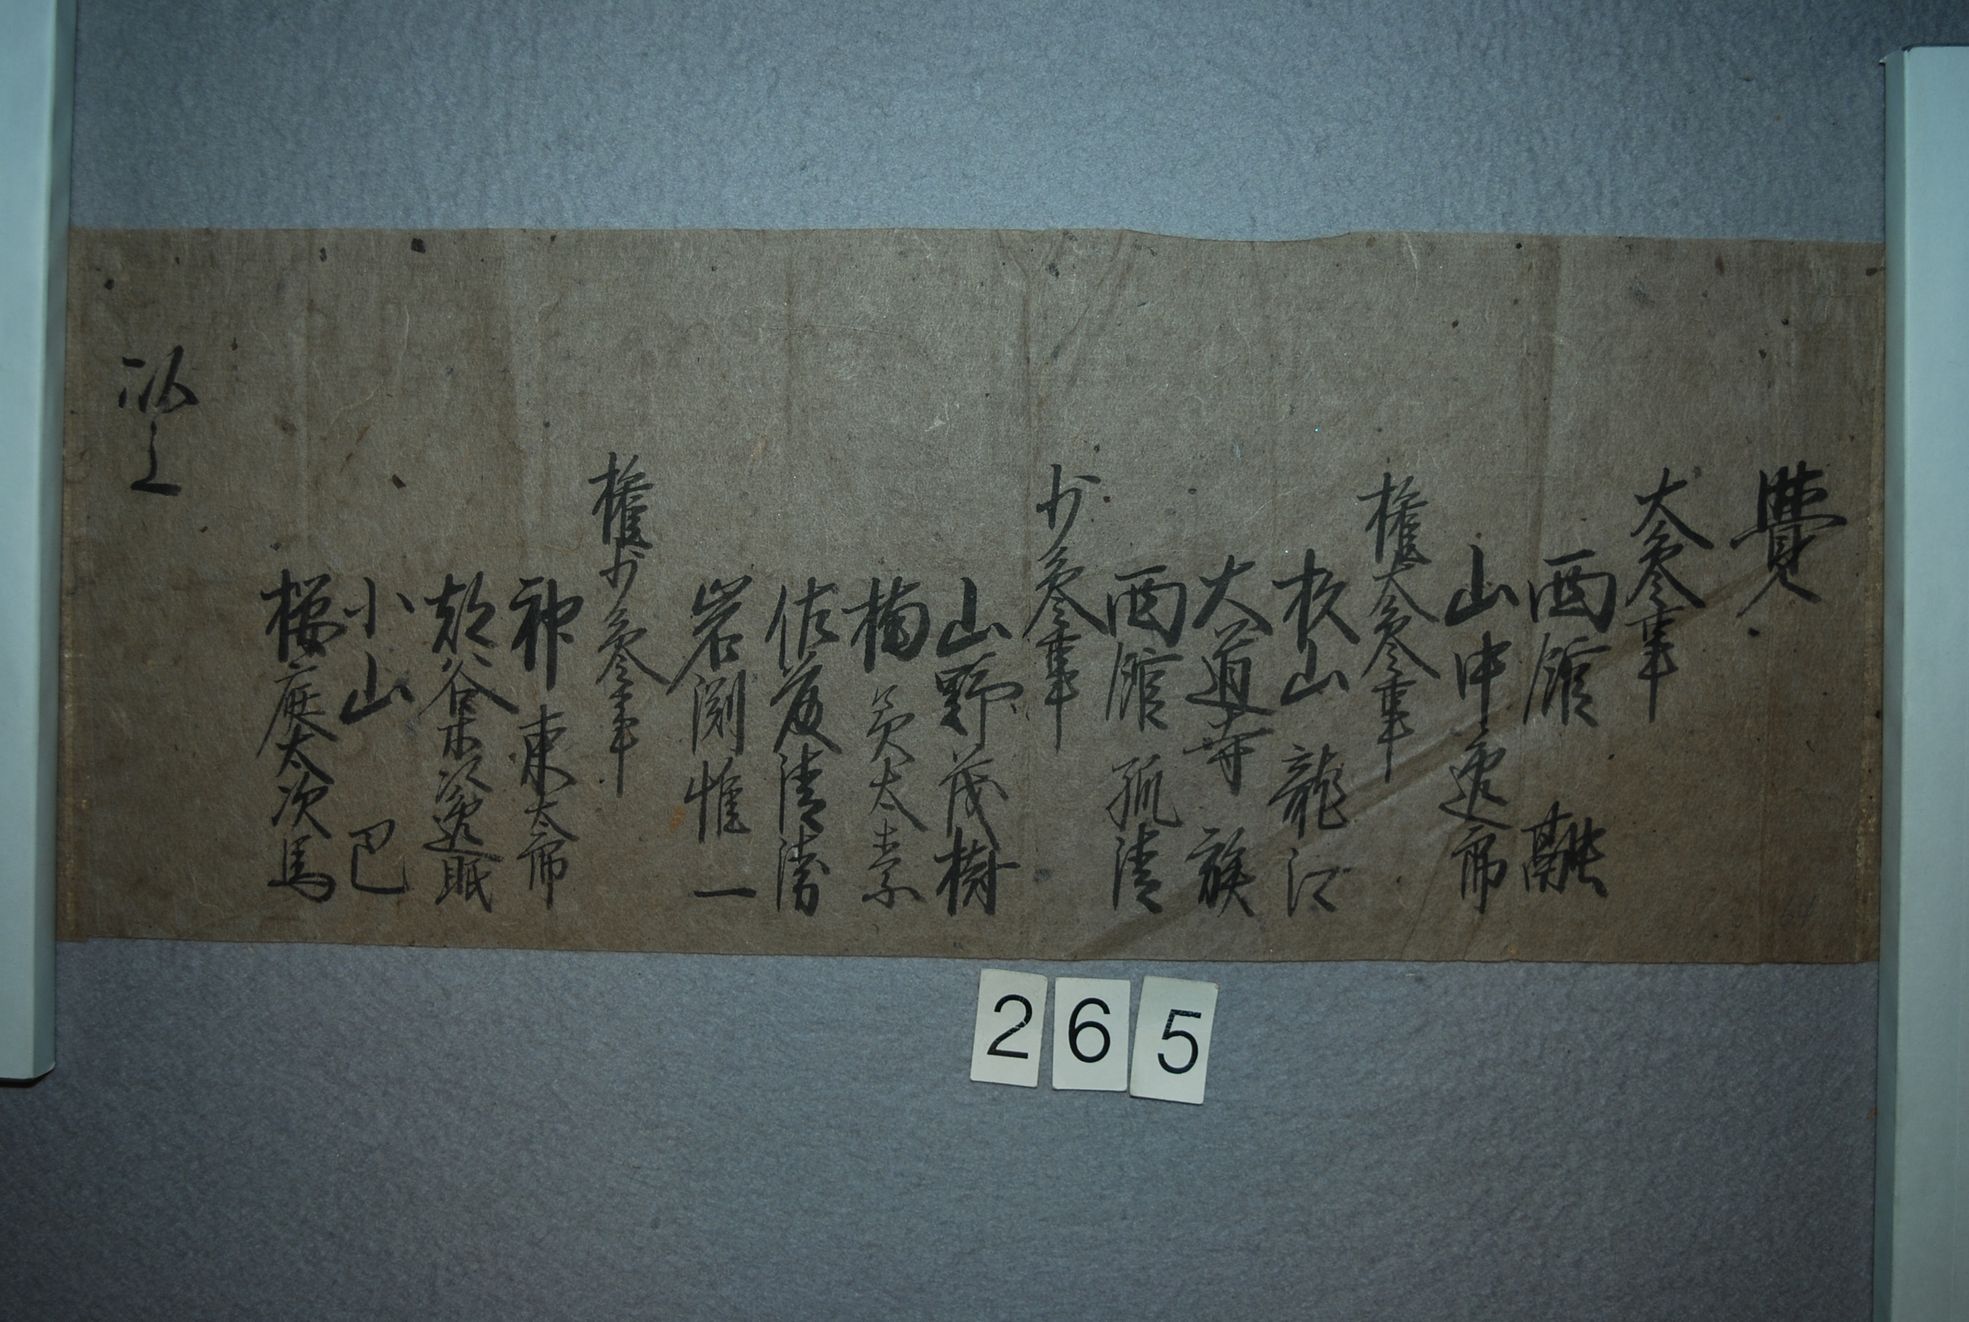 覺
大参事
西舘 融
山中逸郎
權大参事
杦山龍江
大道寺族
西舘孤清
少参事
山野茂樹
楠美太素
佐藤清衛
岩渕惟一
權少参事
神東太郎
小山 巴
樋庭太次馬
以上
265